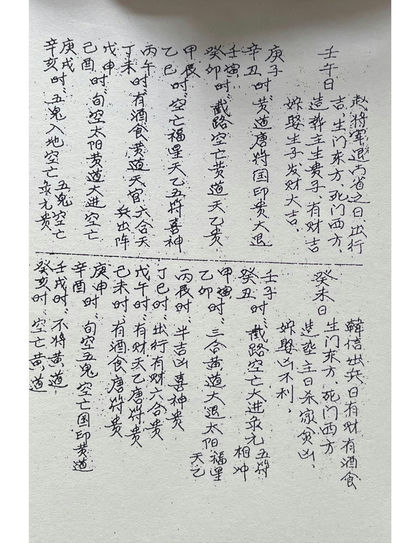 壬午日
赵将军退六省之日,出行
吉,生门东方,死门西方,
造葬主生贵子,有财吉
嫁娶生子发财大吉.
庚子时
辛丑时、黄道唐符国印贵大退
壬寅时
癸卯时、截路空亡黄道天乙贵
甲辰时
乙巳时、空亡福星天乙五符喜神
丙午
丁未时、有酒食黄道天官六合天
兵出阵
戊申时
己酉时、旬空太阳黄道大进空亡
庚戌时
五鬼空亡
辛亥时、五鬼入地空亡 贵
癸未日
韩信出兵日有财有酒食
生门东方,死门西方
造葬主日杀家贫凶,
嫁娶凶不利,
壬子时
五符
癸丑时、截路空亡大进 相冲
甲寅时
乙卯时、三合黄道大退太阳福星
天乙
丙辰时、半吉凶喜神贵
丁巳时、出行有财六合贵
戊午时、有财天乙唐符贵
己未时、有酒食唐符贵
庚申时
辛酉时、旬空五鬼空亡国印黄道
壬戌时、不将黄道
癸亥时、空亡黄道